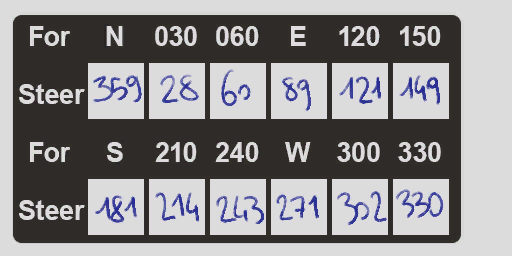 For N 030 060 E 120 150
Steer 359 28 60 89 121 149
For S 210 240 W 300 330
Steer 181 214 243 271 302 330